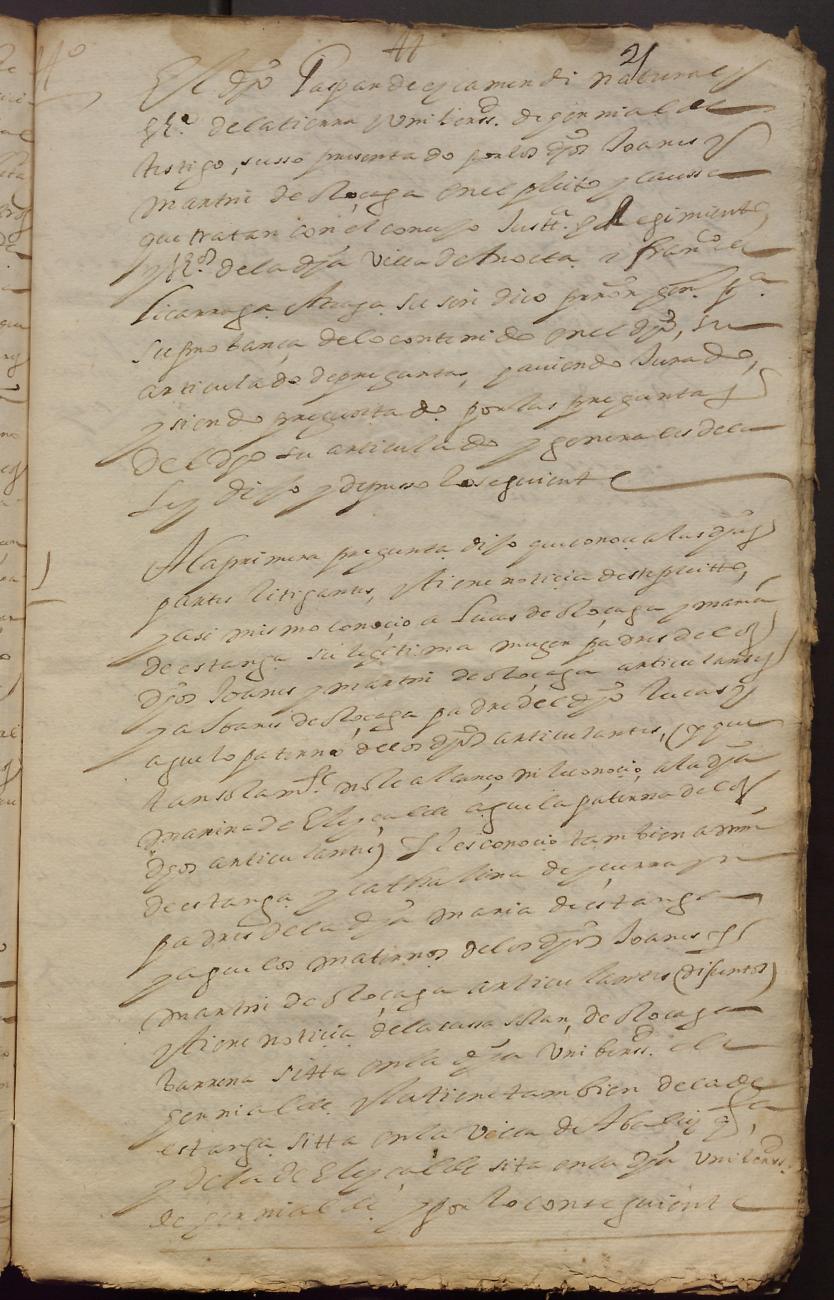 21
El dho Gaspar de eycamendi natural y
vzº de la tierra y Unibersd. de gerrialde
testigo, susso presentado por los dhos Joanes y
martin de Roçaga en el pleito y caussa
que tratan con el concejo Justª. y Regimiento
y vzos de la dha Villa de Anoeta y franco de
licarraga Ateaga su sindico prºr genl. pª
su probança de lo contenido en el dho, su
articulado de preguntas, y auiendo Jurado,
y siendo preguntado por las preguntas
del dho su articulado y generales de la
ley dijo y depusso lo seguiente
A la primera pregunta dijo que conoce a las dhas
partes litigantes, y tiene noticia deste pleitto,
y asi mismo conocio a Lucas de Roçaga y maria
de estanga su legitima muger padres de los
dhos Joanes y martin de Roçaga articulantes
y a Joanes de Roçaga padre del dho lucas y
aguelo paterno de los dhos articulantes, (y que
tan solamte no le alcanço ni le conocio, a la dha
marina de Eleyçalde aguela paterna de los
dhos articulantes) y les conocio tambien a mın
de estanga y cathalina de yçurra
padres de la dha maria de estanga
y aguelos maternos de los dhos Joanes y
martin de Roçaga articulantes (difuntos)
y tiene noticia de la cassa solar, de Roçaga
barrena sitta en la dha Unibersd. de
gerrialde. y la tiene tambien de la de
estanga sitta en la Villa de Abalizqª,
y de la de Eleyçalde sita en la dha Unibersd.
de gerrialde y por lo conseguiente